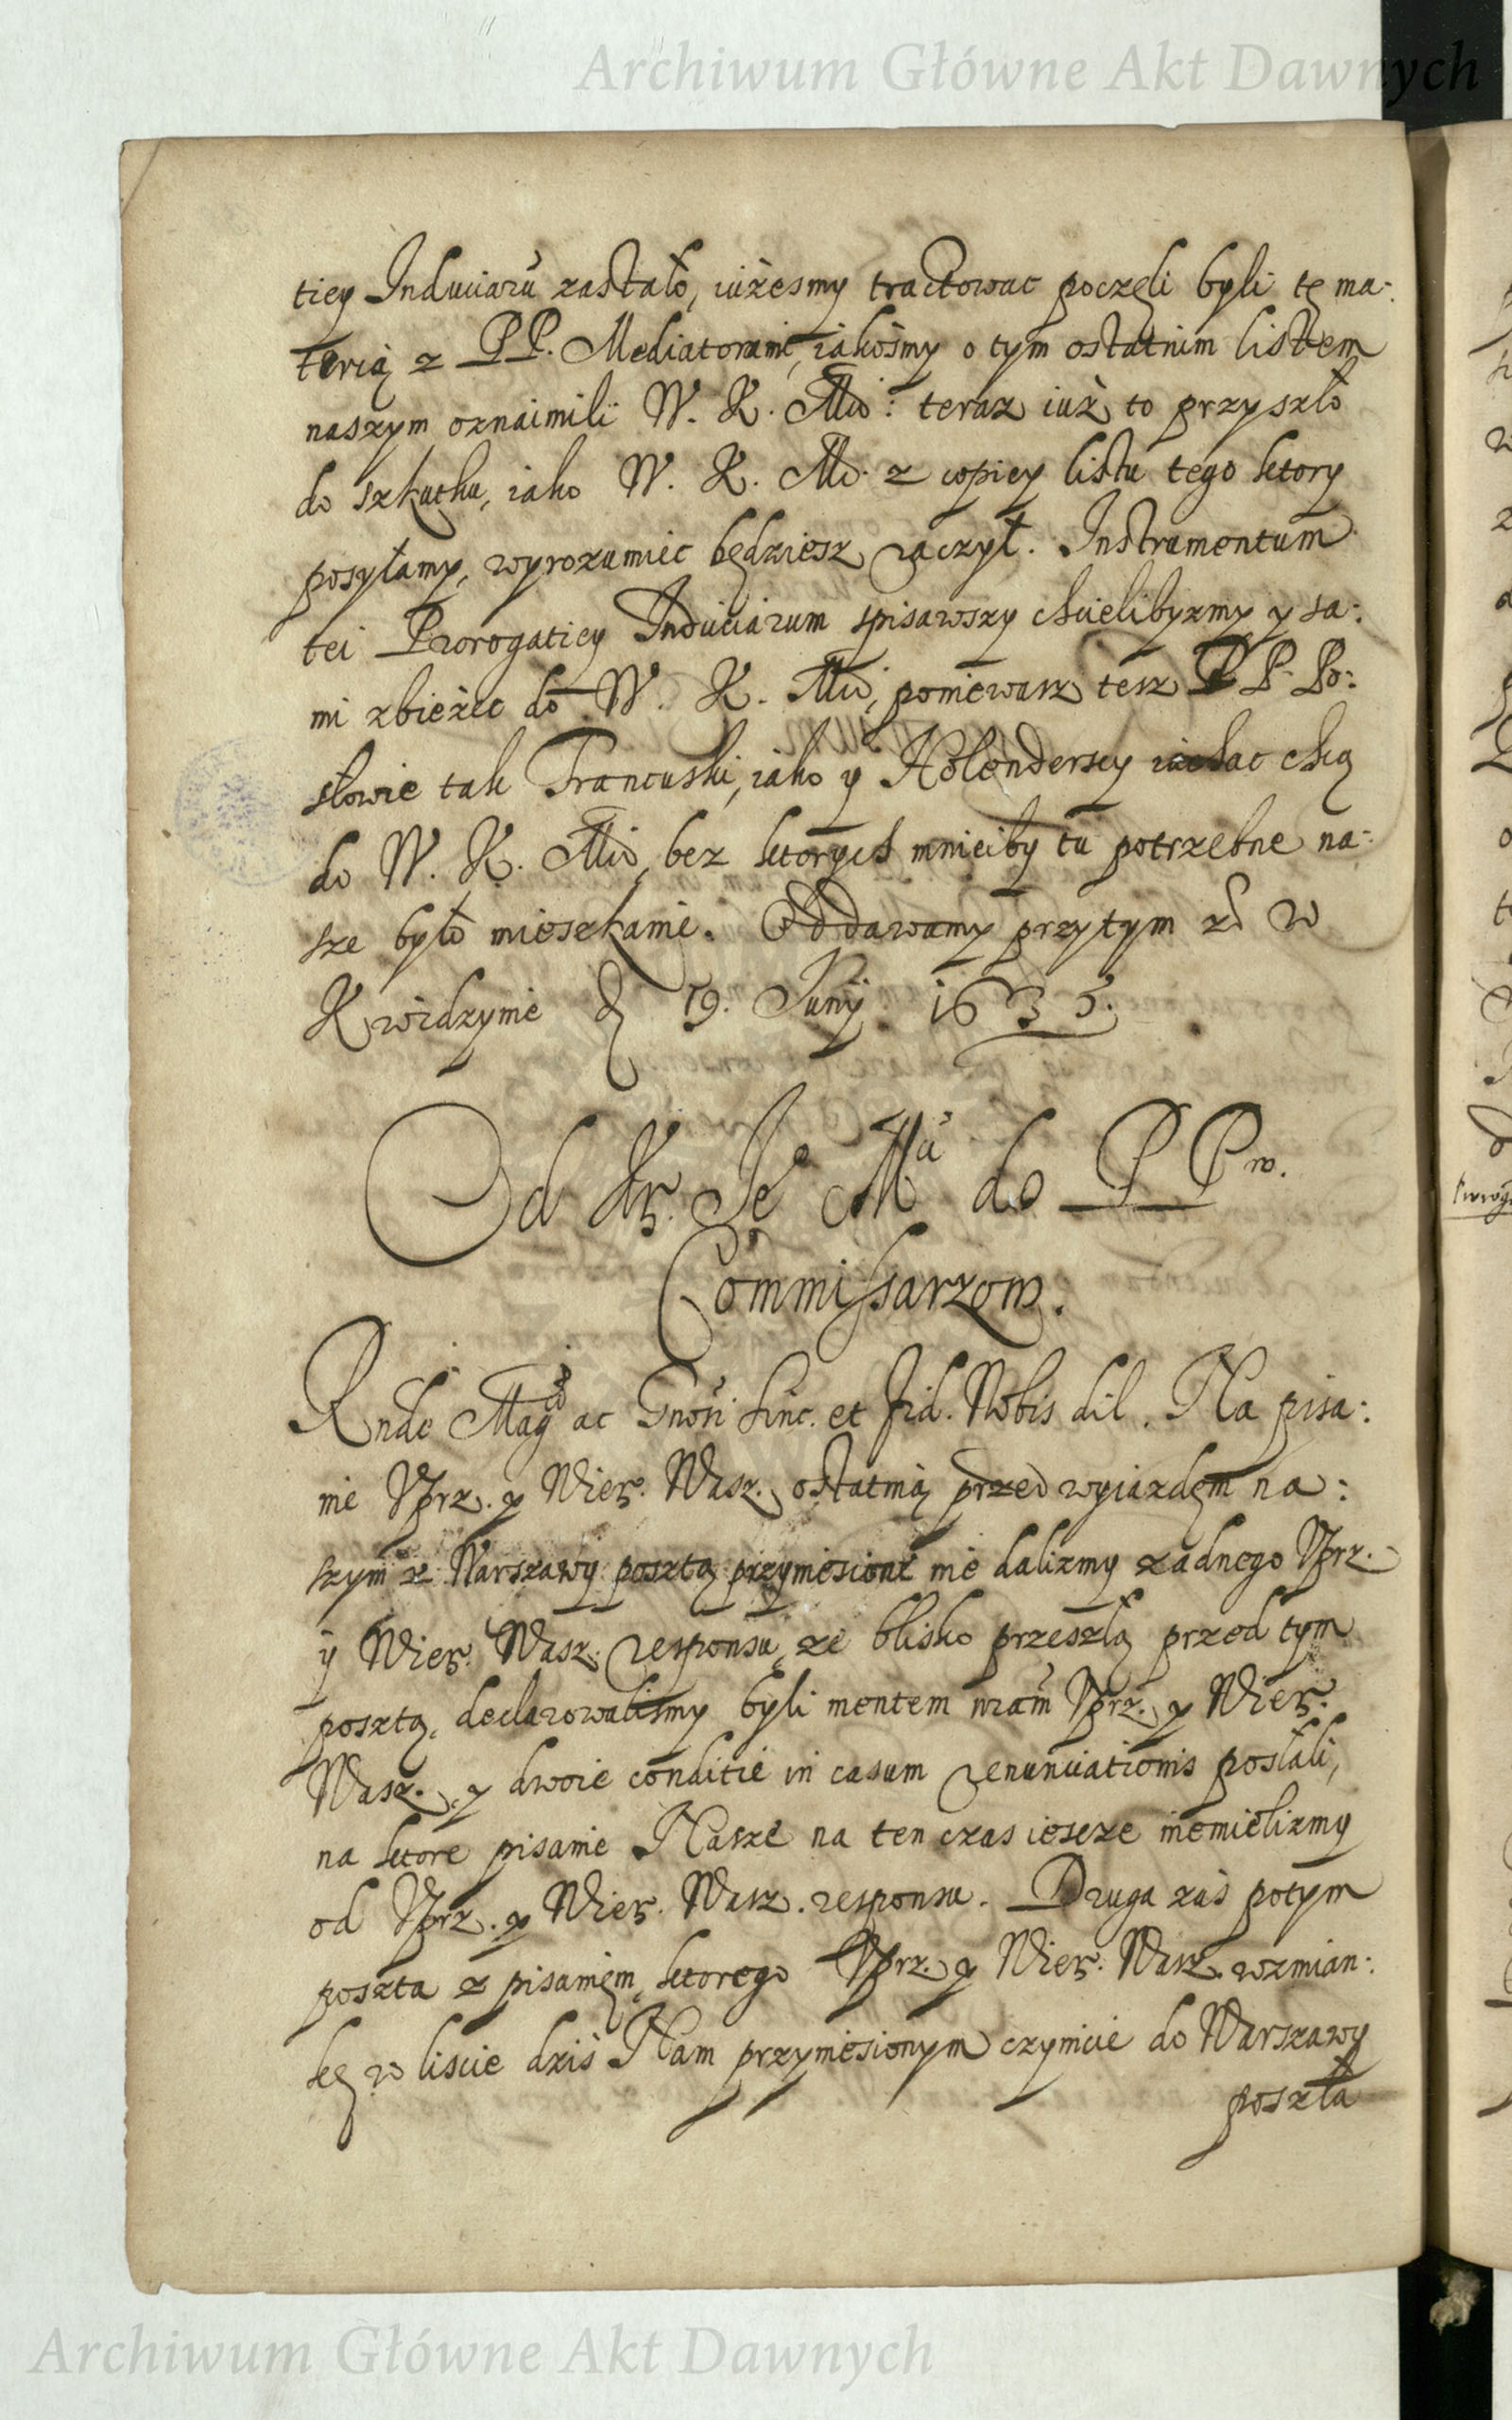 Archiwum Główne Akt Dawnych
tiey Induciarũ zastało, iużesmy tractowac poczęli byli tę ma-
terią z PP. Mediatorami, iakośmy o tym ostatnim listem
naszym oznaimili W. K. Mci: teraz iuż to przyszło
do szkutku, iako W. K. Mć. z copiey listu tego ktory
posyłamy, wyrozumiec będziesz raczył. Instrumentum
tei Prorogatiey Induciarum spisawszy chcielibyzmy y sa:
mi zbieżec do W. K. Mci, poniewasz tesz P P. Po:
słowie tak Francuski, iako y Holenderscy iachac chcą
do W. K. Mci, bez ktorych mnieiby tu potrzebne na-
sze było mieszkanie. Oddawamy przytym zd w
Kwidzynie d 19. Junij 1635.
Od Kr. Je Mci do P P w.
Commissarzom.
Rnde Magci ac Gnosi sinc. et fid. Nobis dil. Na pisa:
nie Uprz. y Wier. Wasz. ostatnią przed wyiazdęm na:
szym z Warszawy posztą przyniesione nie dalizmy żadnego Uprz.
ÿ Wier. Wasz. responsu, że blisko przeszłą przed tym
posztą, declarowalismy byli mentem nram Uprz. y Wier.
Wasz. y dwoie conditie in casum renunciationis posłali,
na ktore pisanie Nasze na ten czas iescze niemielizmy
od Uprz. y Wier. Wasz. responsu. Druga zaś potym
poszta z pisanięm, ktorego Uprz. y Wier. Wasz. wzmian:
kę w liscie dziś Nam przyniesionym czynicie do Warszawy
poszła
Archiwum Główne Akt Dawnych